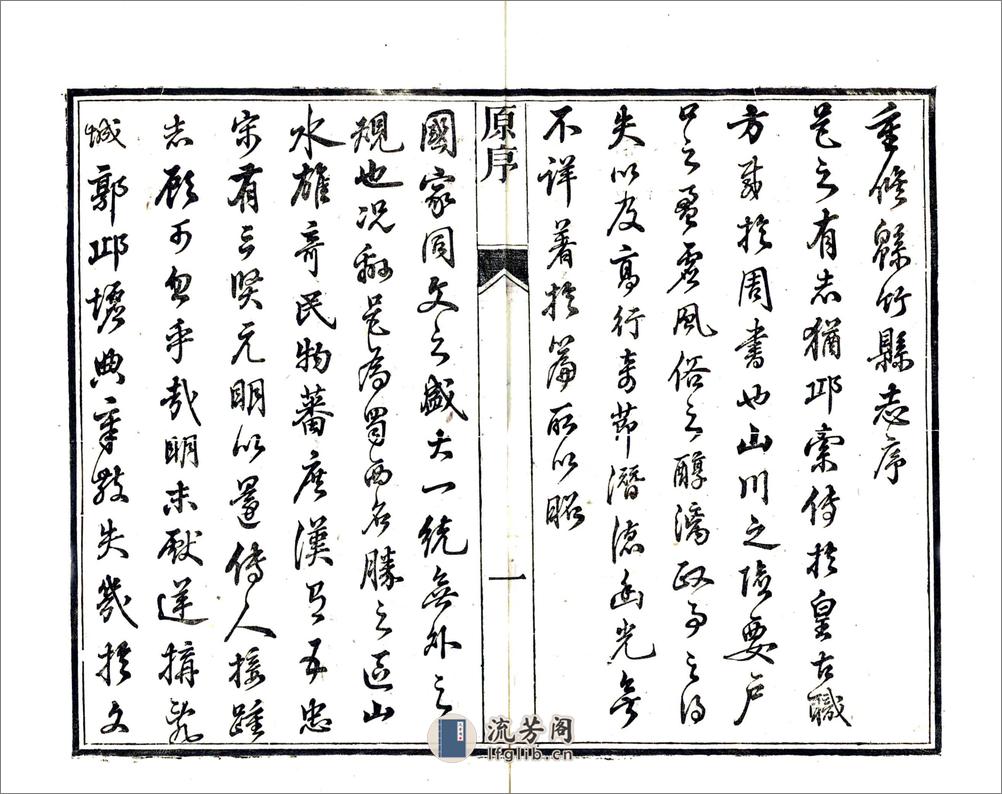 重修綿竹縣志序
邑之有志猶邱索傳於皇古職
方載於周書也山川之險要戶
口之盈虛風俗之醇漓政事之得
失以及高行奇節潛德幽光無
不詳著於篇所以昭
原序
一
國家同文之盛大一統無外之
規也况綿邑為蜀西名勝之區山
水雄奇民物蕃庶漢有五忠
宋有三賢元明以還傳人接踵
志顧可忽乎哉明末獻逆搆亂
城郭邱墟典章散失幾於文
流芳阁
lfglib.cn